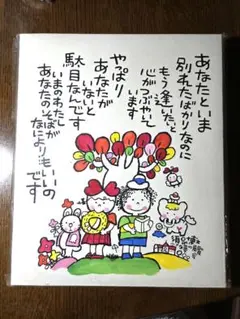 あなたといま
別れたばかりなのに
もう逢いたいと
心がつぶやいて
います
やっぱり
あなたが
いないと
駄目なんです
いまのわたし
あなたのそばが
なによりもいい
のです